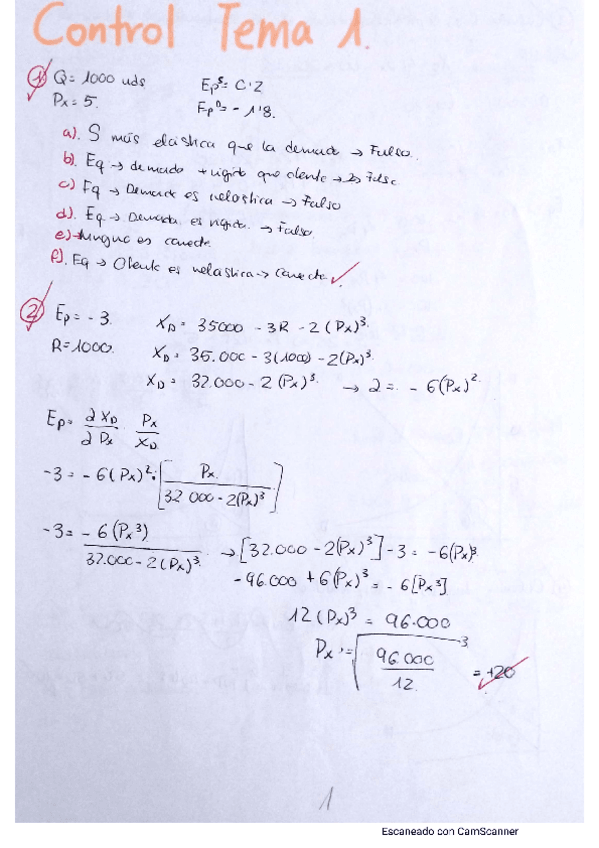 Control Tema 1.
1) Q = 1000 uds    Ep^S = 0'2
Px = 5.    Ep^D = -1'8.
a). S más elástica que la demanda → Falso.
b). Eq → demanda + rígida que oferta → Falso
c) Eq → Demanda es inelástica → Falso
d). Eq → Demanda es rígida. → Falso.
e) → Ninguna es correcta
f). Eq → Oferta es inelástica → Correcta
2) Ep = -3.    X_D = 35000 - 3R - 2(Px)^3.
R = 1000.    X_D = 35.000 - 3(1000) - 2(Px)^3.
X_D = 32.000 - 2(Px)^3. → ∂ = -6(Px)^2.
Ep = ∂X_D/∂Px · Px/X_D
-3 = -6(Px)^2 · [Px/(32000 - 2(Px)^3)]
-3 = -6(Px^3)/(32.000 - 2(Px)^3) → [32.000 - 2(Px)^3] - 3 = -6(Px)^3
-96.000 + 6(Px)^3 = -6[Px^3]
12(Px)^3 = 96.000
Px = ∛(96.000/12) = 20
1
Escaneado con CamScanner